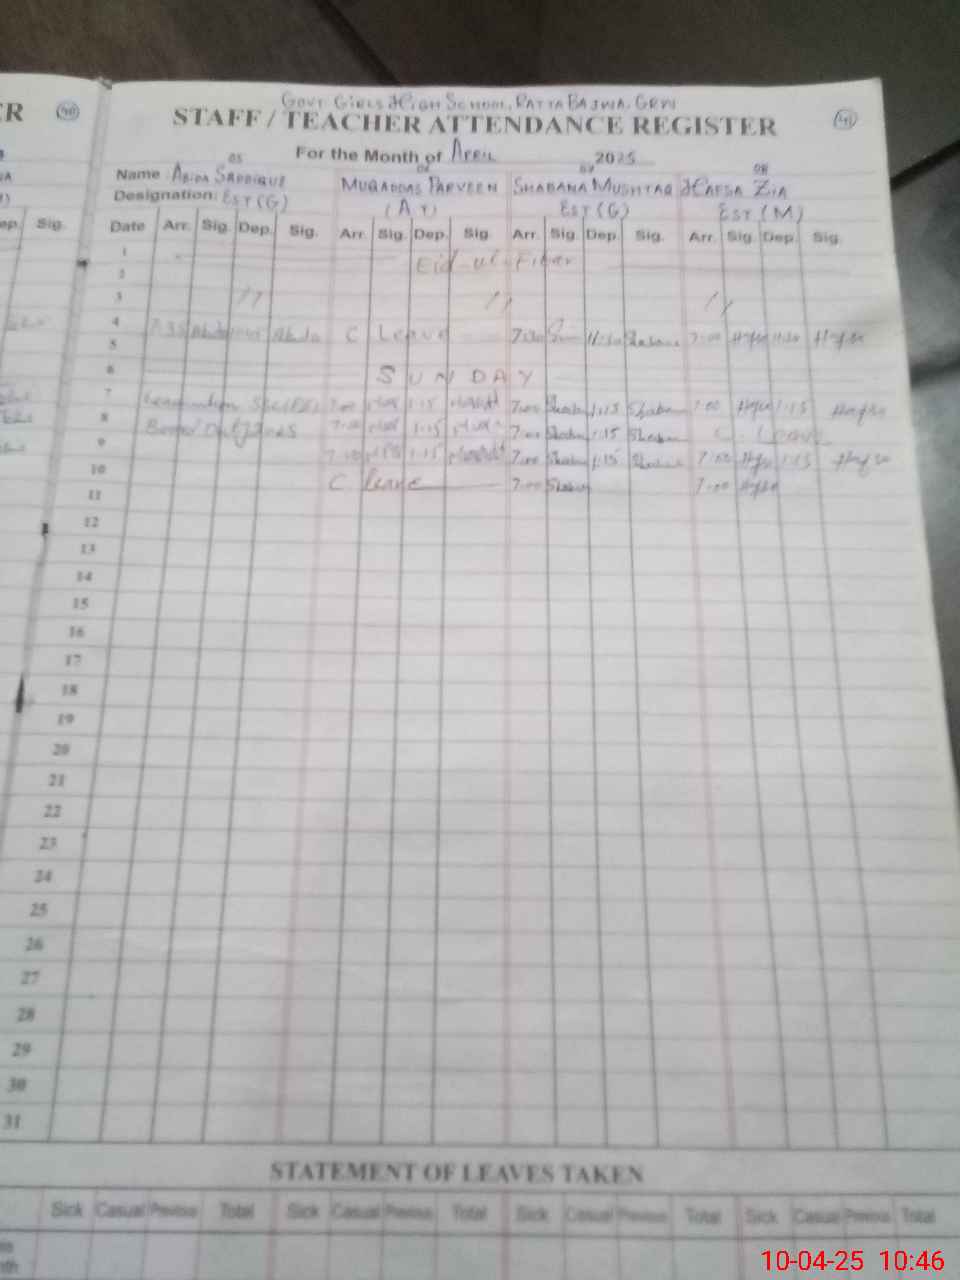 GOVT. GIRLS HIGH SCHOOL, RATTA BAJWA. GRW
ER 40 STAFF / TEACHER ATTENDANCE REGISTER 41
For the Month of APRIL 2025
05 06 07 08
Name : ABIDA SADDIQUE MUQADDAS PARVEEN SHABANA MUSHTAQ HAFSA ZIA
Designation: EST (G) (AT) EST (G) EST (M)
ep. Sig. Date Arr. Sig. Dep. Sig. Arr. Sig. Dep. Sig. Arr. Sig. Dep. Sig. Arr. Sig. Dep. Sig.
1
Eid-ul-Fitar
2
3 // // //
4 C Leave 7:00 11:30 Shabana 7:00 Hafsa 11:30 Hafsa
5
6 SUNDAY
7 7:00 1:15 7:00 Shaban 1:15 Shaban 7:00 Hafsa 1:15 Hafsa
8 Board 7:00 1:15 7:00 Shaban 1:15 Shaban C. Leave
9 7:00 1:15 7:00 Shaban 1:15 Shaban 7:00 Hafsa 1:15 Hafsa
10 C leave 7:00 Shaban 7:00 Hafsa
11
12
13
14
15
16
17
18
19
20
21
22
23
24
25
26
27
28
29
30
31
STATEMENT OF LEAVES TAKEN
Sick Casual Previous Total Sick Casual Previous Total Sick Casual Previous Total Sick Casual Previous Total
nth
10-04-25 10:46